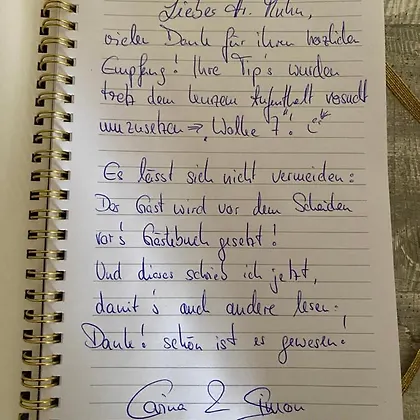 Liebes Fr. Muhn,
vielen Dank für ihren herzlichen
Empfang! Ihre Tip's wurden
trotz dem kurzem Aufenthalt versucht
umzusetzen => "Wolke 7"!
Es lässt sich nicht vermeiden:
Der Gast wird vor dem Scheiden
vor's Gästebuch gesetzt!
Und dieses schrieb ich jetzt,
damit's auch andere lesen:
Danke! schön ist es gewesen!
Carina & Simon